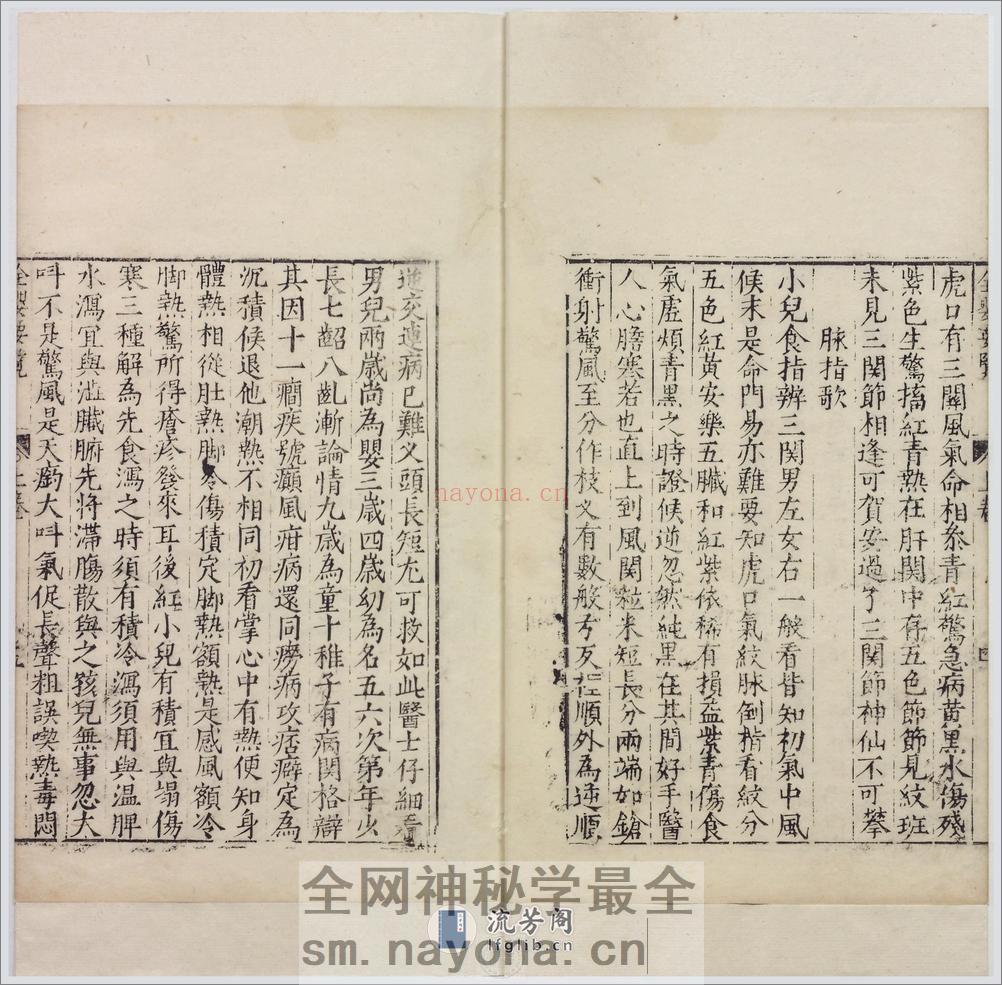 虎口有三關風氣命相叅青紅驚急病黃黑水傷殘
紫色生驚搐紅青熱在肝関中存五色節節見紋班
未見三関節相逢可賀安過了三関節神仙不可攀
脉指歌
小兒食指辨三関男左女右一般看皆知初氣中風
候末是命門易亦難要知虎口氣紋脉倒指看紋分
五色紅黃安樂五臟和紅紫依稀有損益紫青傷食
氣虛煩青黑之時證候逆忽然純黒在其間好手醫
人心膽寒若也直上到風関粒米短長分兩端如鎗
衝射驚風至分作枝义有數般弓反順外為逆順
逆交連病已難义頭長短尤可救如此醫士仔細看
男兒兩歳尚為嬰三歳四歳幼為名五六次第年少
長七齠八齔漸論情九歳為童十稚子有病関格辯
其因十一癎疾號癲風疳病還同癆病攻痞癖定為
沉積候退他潮熱不相同初看掌心中有熱便知身
體熱相從肚熱脚冷傷積定脚熱額熱是感風額冷
脚熱驚所得瘡疹發來耳後紅小兒有積宜與塌傷
寒三種解為先食瀉之時須有積冷瀉須用與温脾
水瀉宜與澁臟腑先將滯膓散與之孩兒無事忽大
呌不是驚風是天癇大呌氣促長聲粗誤喫熱毒悶
全嬰要覽
nayona.cn
全网神秘学最全
流芳阁
lfglib.cn
sm.nayona.cn